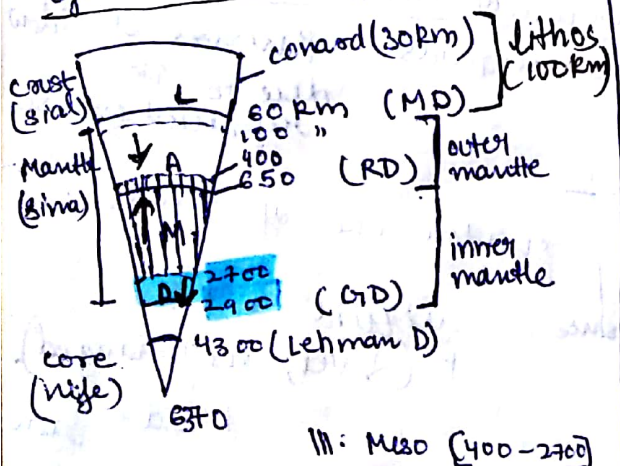 conaod (30km)
lithos
(100km)
crust
(sial)
L
60 km (MD)
100 "
Mantle
(sima)
A
400
650
(RD)
outer
mantle
M
inner
mantle
D
2700
2900
(GD)
4300 (Lehman D)
core
(nife)
6370
M: Meso [400-2700]